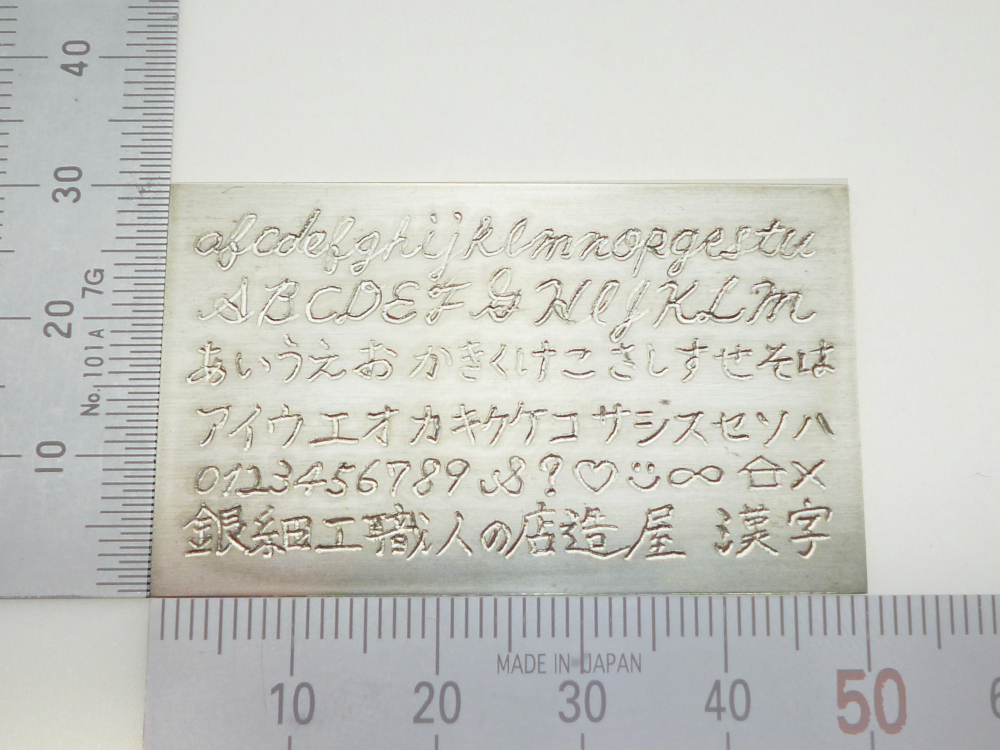 40
30
20
10
No.101A 7G
abcdefghijklmnopqrstu
ABCDEFGHIJKLM
あいうえお かきくけこさしすせそは
アイウエオカキケケコサシスセソハ
0123456789 &?♡ ∞ ×
銀細工職人の店造屋 漢字
MADE IN JAPAN
10 20 30 40 50 6